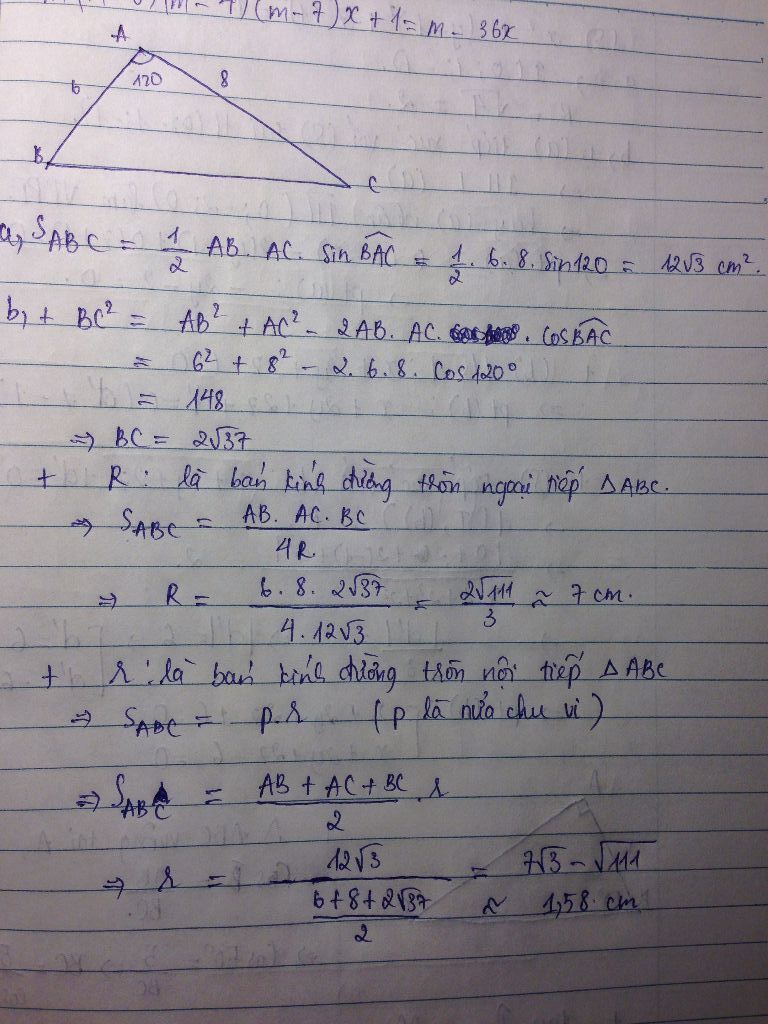 (m-7)(m-7)x+1=m-36x
A
6
120
8
B
C
a, S_ABC = 1/2 AB. AC. sin BAC = 1/2 . 6. 8. sin120 = 12√3 cm².
b, + BC² = AB² + AC² - 2AB. AC. . cosBAC
= 6² + 8² - 2. 6. 8. cos120°
= 148
⇒ BC = 2√37
+ R: là bán kính đường tròn ngoại tiếp ΔABC.
⇒ S_ABC = AB. AC. BC / 4R
⇒ R = 6. 8. 2√37 / 4. 12√3 = 2√111 / 3 ≈ 7 cm.
+ r: là bán kính đường tròn nội tiếp ΔABC
⇒ S_ABC = p.r (p là nửa chu vi)
⇒ S_ABC = AB + AC + BC / 2 .r
⇒ r = 12√3 / (6+8+2√37 / 2) = 7√3 - √111
≈ 1,58. cm